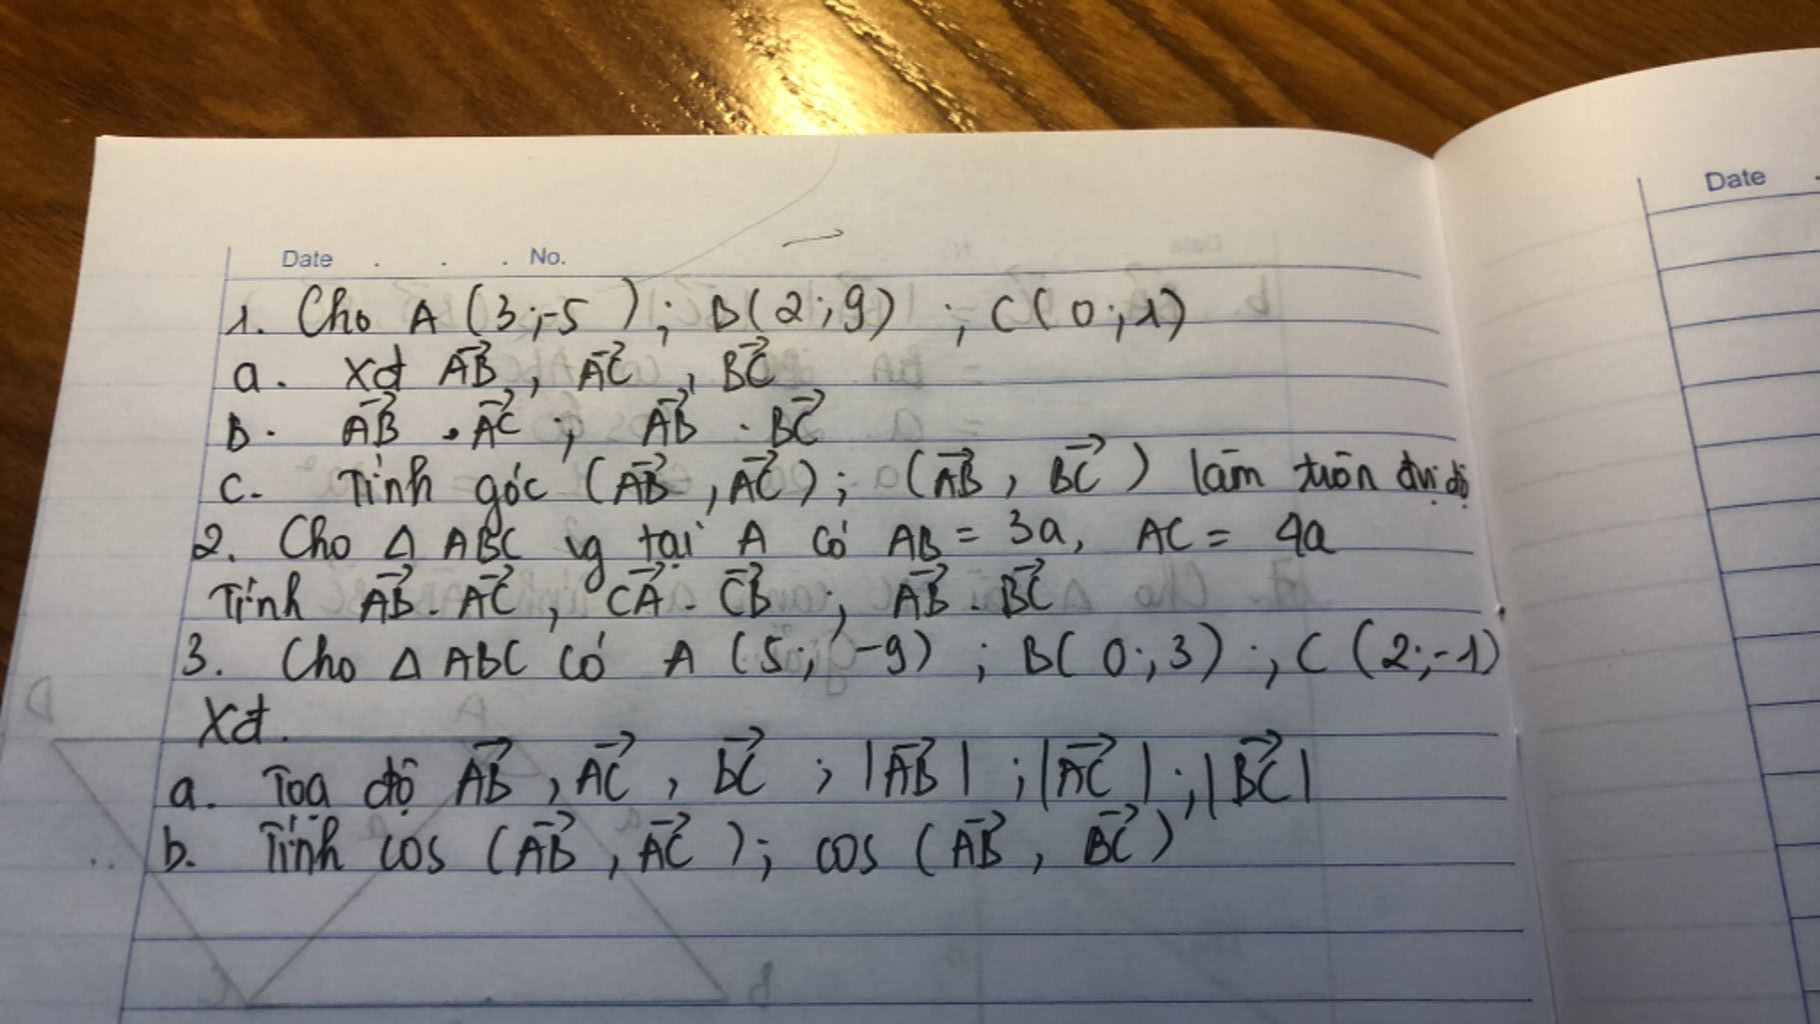 Date . . . No.
Date
1. Cho A (3;-5); B(2;9); C(0;1)
a. Xđ AB→, AC→, BC→
b. AB→ . AC→; AB→ . BC→
c. Tính góc (AB→, AC→); (AB→, BC→) làm tròn đvị độ
2. Cho Δ ABC vg tại A có AB = 3a, AC = 4a
Tính AB→ . AC→, CA→ . CB→; AB→ . BC→
3. Cho Δ ABC có A (5; -9); B(0;3); C (2;-1)
Xđ.
a. Toạ độ AB→, AC→, BC→; |AB→|; |AC→|; |BC→|
b. Tính cos (AB→, AC→); cos (AB→, BC→)